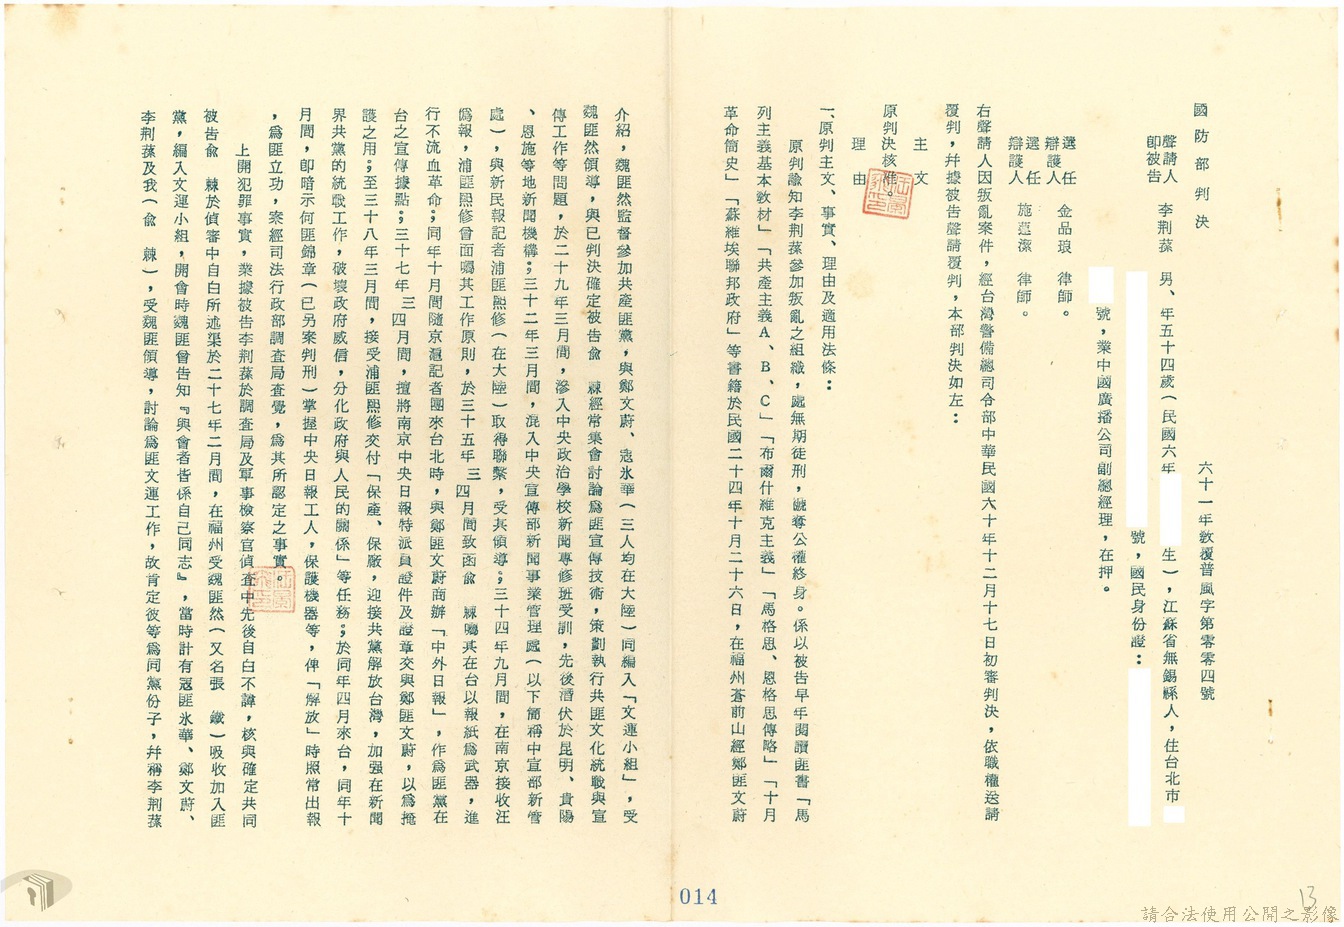 國防部判決
六十一年敎覆普風字第零零四號
聲請人
卽被告 李荆蓀 男、年五十四歲（民國六年 生），江蘇省無錫縣人，住台北市
號，國民身份證：
號，業中國廣播公司副總經理，在押。
選任
辯護人 金品琅 律師。
選任
辯護人 施藴潔 律師。
右聲請人因叛亂案件，經台灣警備總司令部中華民國六十年十二月十七日初審判決，依職權送請
覆判，幷據被告聲請覆判，本部判決如左：
主文
原判決核准。
理由
一、原判主文、事實、理由及適用法條：
原判諭知李荆蓀參加叛亂之組織，處無期徒刑，褫奪公權終身。係以被告早年閱讀匪書「馬
列主義基本敎材」「共產主義A、B、C」「布爾什維克主義」「馬格思、恩格思傳略」「十月
革命簡史」「蘇維埃聯邦政府」等書籍於民國二十四年十月二十六日，在福州蒼前山經鄭匪文蔚
介紹，魏匪然監督參加共產匪黨，與鄭文蔚、寇氷華（三人均在大陸）同編入「文運小組」，受
魏匪然領導，與已判決確定被告俞 棘經常集會討論爲匪宣傳技術，策劃執行共匪文化統戰與宣
傳工作等問題，於二十九年三月間，滲入中央政治學校新聞專修班受訓，先後潛伏於昆明、貴陽
、恩施等地新聞機構；三十二年三月間，混入中央宣傳部新聞事業管理處（以下簡稱中宣部新管
處），與新民報記者浦匪熙修（在大陸）取得聯繫，受其領導；三十四年九月間，在南京接收汪
僞報，浦匪熙修曾面囑其工作原則，於三十五年三四月間致函俞 棘囑其在台以報紙爲武器，進
行不流血革命；同年十月間隨京滬記者團來台北時，與鄭匪文蔚商辦「中外日報」，作爲匪黨在
台之宣傳據點；三十七年三四月間，擅將南京中央日報特派員證件及證章交與鄭匪文蔚，以爲掩
護之用；至三十八年三月間，接受浦匪熙修交付「保產、保廠，迎接共黨解放台灣，加强在新聞
界共黨的統戰工作，破壞政府威信，分化政府與人民的關係」等任務；於同年四月來台，同年十
月間，卽暗示何匪錦章（已另案判刑）掌握中央日報工人，保護機器等，俾「解放」時照常出報
，爲匪立功，案經司法行政部調查局查覺，爲其所認定之事實。
上開犯罪事實，業據被告李荆蓀於調查局及軍事檢察官偵查中先後自白不諱，核與確定共同
被告俞 棘於偵審中自白所述渠於二十七年二月間，在福州受魏匪然（又名張 鐵）吸收加入匪
黨，編入文運小組，開會時魏匪曾告知『與會者皆係自己同志』，當時計有寇匪氷華、鄭文蔚、
李荆蓀及我（俞 棘），受魏匪領導，討論爲匪文運工作，故肯定彼等爲同黨份子，幷稱李荆蓀
014
13
請合法使用公開之影像